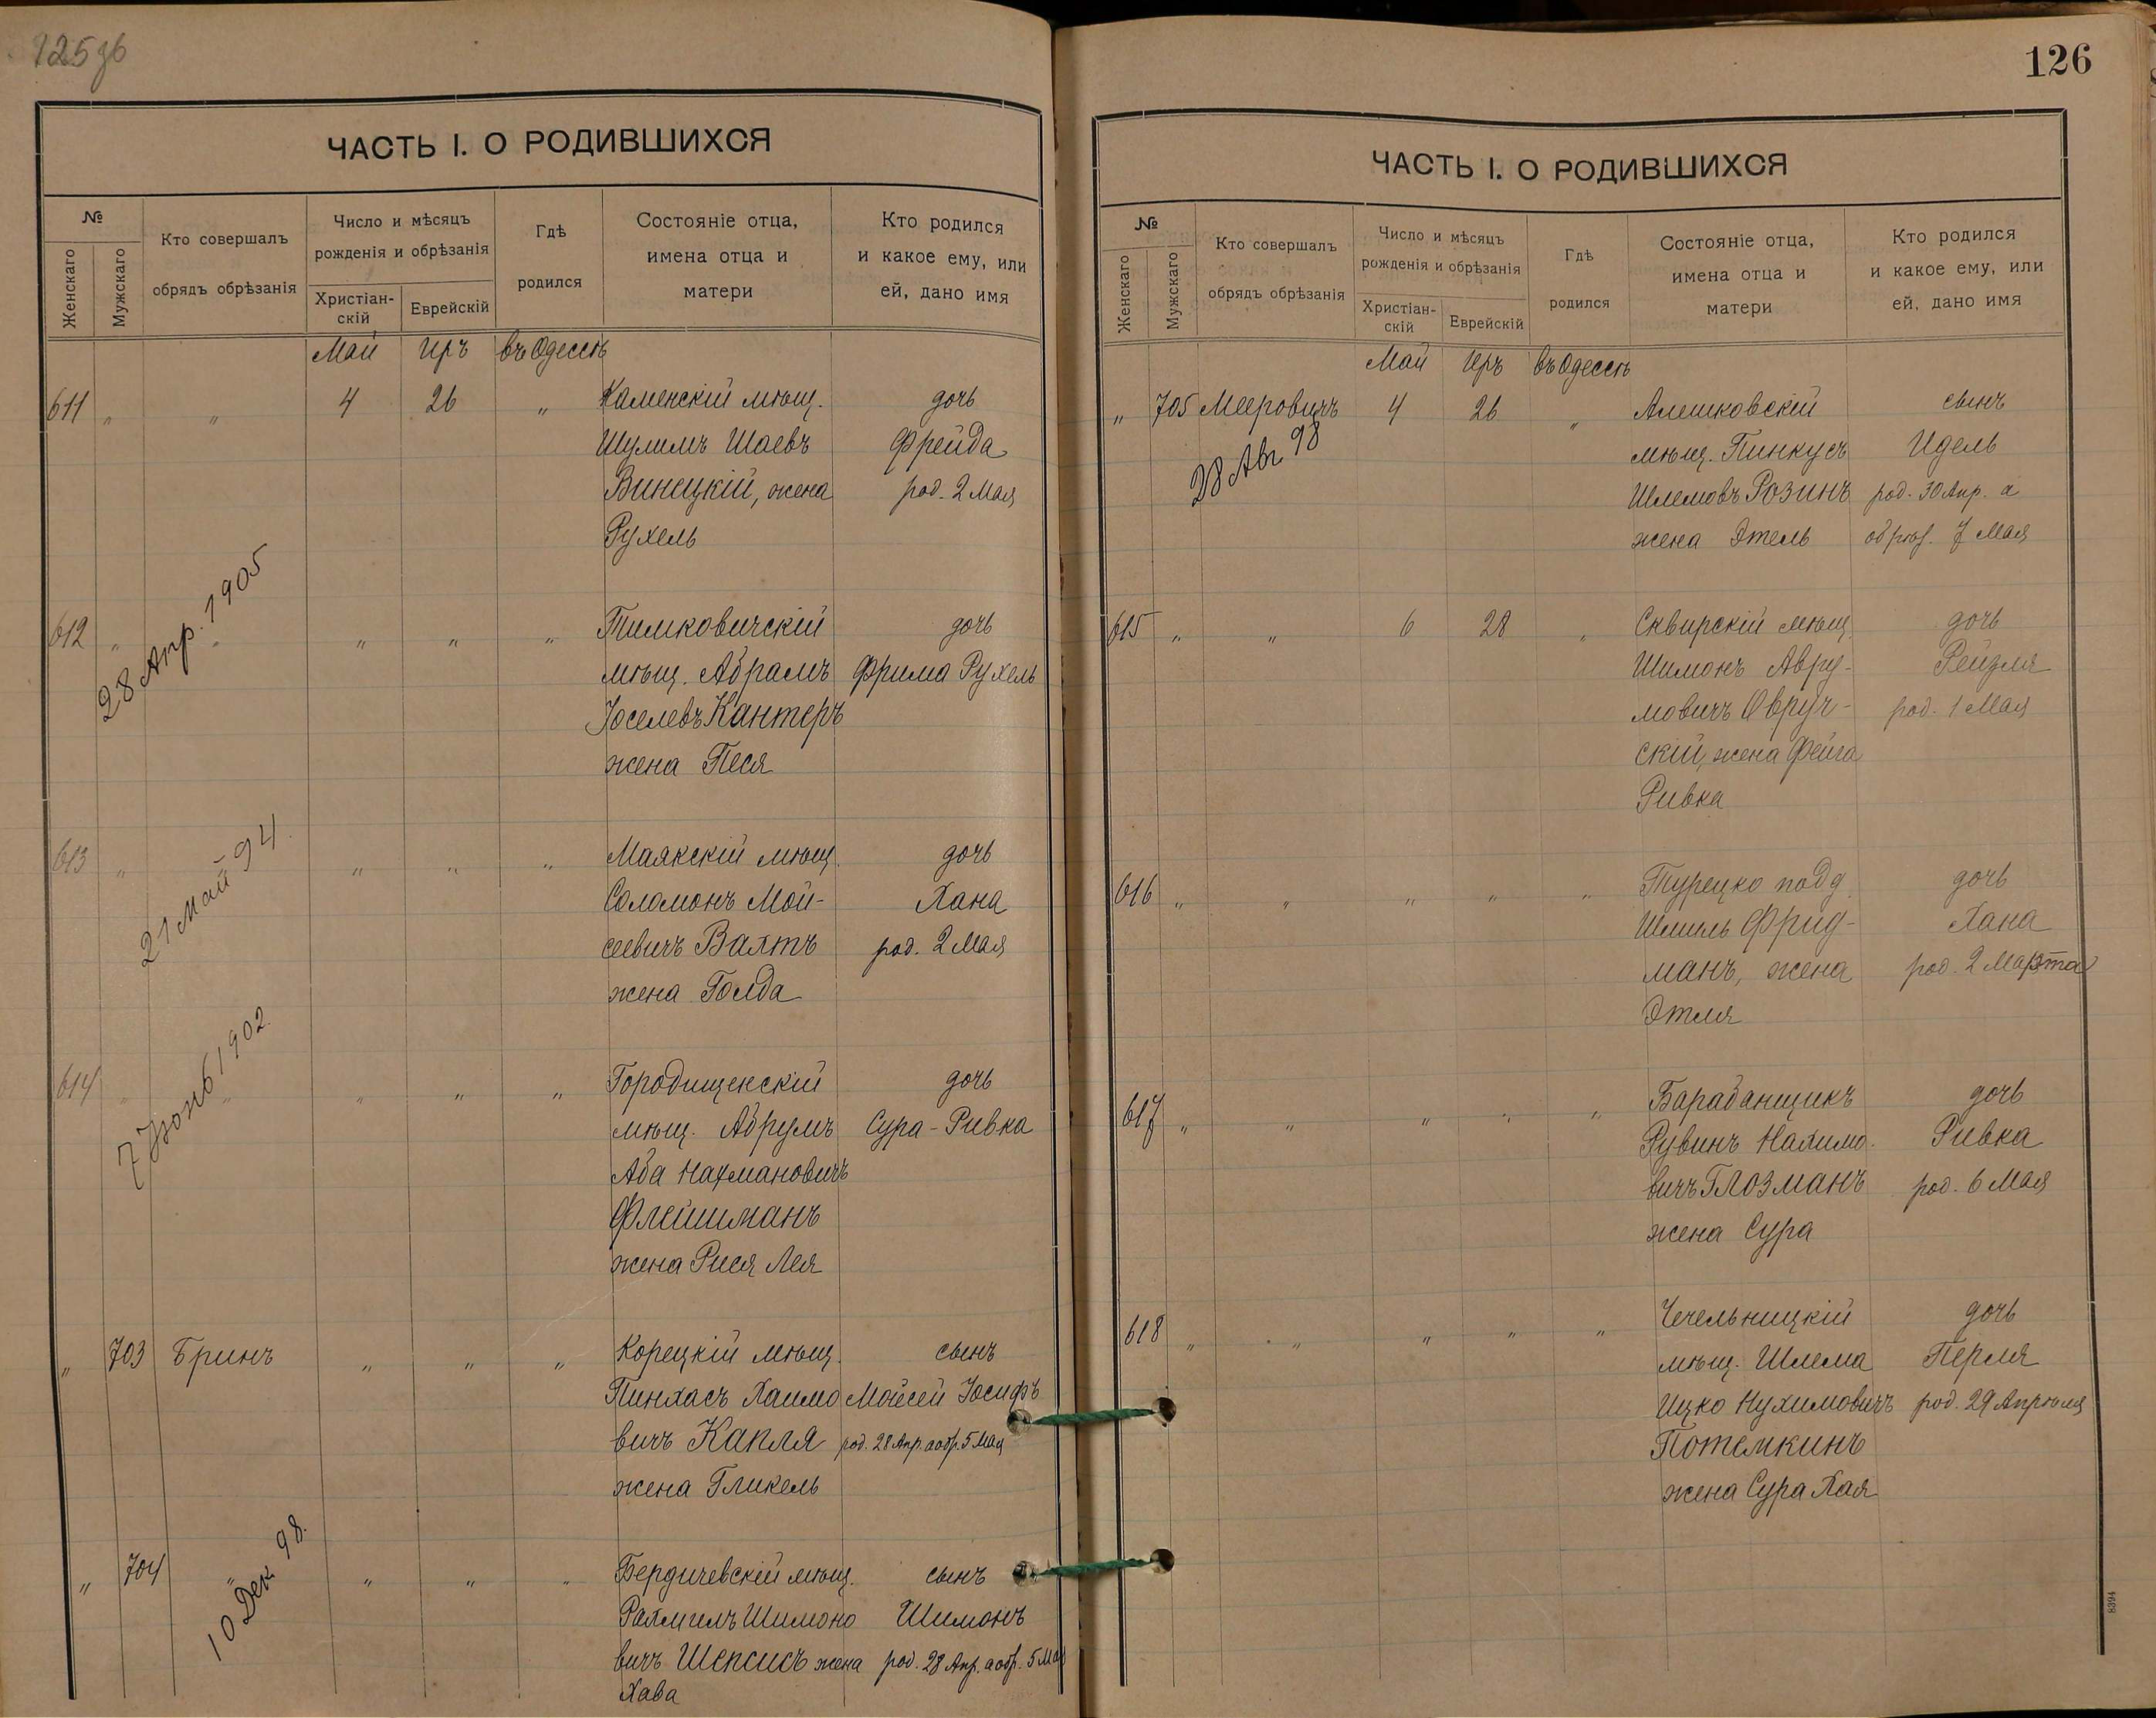 125 об
ЧАСТЬ I. О РОДИВШИХСЯ
№
Женскаго
Мужскаго
Кто совершалъ
обрядъ обрѣзанія
Число и мѣсяцъ
рожденія и обрѣзанія
Христіан-
скій
Еврейскій
Гдѣ
родился
Состояніе отца,
имена отца и
матери
Кто родился
и какое ему, или
ей, дано имя
Май Иръ въ Одессѣ
611 " " 4 26 " Каменскій мѣщ. дочь
Шулимъ Шаевъ Фрейда
Винецкій, жена род. 2 Мая
Рухель
28 Апр. 1905
612 " " " " " Тимковичскій дочь
мѣщ. Абрамъ Фрима Рухель
Іоселевъ Кантеръ
жена Песя
21 Май 94.
613 " " " " Маякскій мѣщ. дочь
Соломонъ Мой- Хана
сеевичъ Вахтъ род. 2 Мая
жена Голда
7 Іюнь 1902.
614 " " " " " Городищенскій дочь
мѣщ. Абрумъ Сура-Ривка
Аба Нахмановичъ
Флейшманъ
жена Рися Лея
" 703 Бринъ " " " Корецкій мѣщ. сынъ
Пинхасъ Хаимо Мойсей Іосифъ
вичъ Капля род. 28 Апр. а обр. 5 Мая
жена Гликель
10 Дек. 98.
" 704 " " " " Бердичевскій мѣщ. сынъ
Рахмилъ Шимоно Шимонъ
вичъ Шепсисъ жена род. 28 Апр. а обр. 5 Мая
Хава
126
ЧАСТЬ I. О РОДИВШИХСЯ
№
Женскаго
Мужскаго
Кто совершалъ
обрядъ обрѣзанія
Число и мѣсяцъ
рожденія и обрѣзанія
Христіан-
скій
Еврейскій
Гдѣ
родился
Состояніе отца,
имена отца и
матери
Кто родился
и какое ему, или
ей, дано имя
Май Иръ въ Одессѣ
" 705 Мееровичъ 4 26 " Алешковскій сынъ
28 Авг 98
мѣщ. Пинкусъ Идель
Шлемовъ Розинъ род. 30 Апр. а
жена Этель обрѣз. 7 Мая
615 " " 6 28 " Сквирскій мѣщ. дочь
Шимонъ Авру- Рейзля
мовичъ Овруч- род. 1 Мая
скій, жена Фейга
Ривка
616 " " " " " Турецко подд. дочь
Шмиль Фрид- Хана
манъ, жена род. 2 Марта
Этля
617 " " " " " Барабанщикъ дочь
Рувинъ Нахимо- Ривка
вичъ Глозманъ род. 6 Мая
жена Сура
618 " " " " " Чечельницкій дочь
мѣщ. Шлема Перля
Ицко Нухимовичъ род. 29 Апрѣля
Потемкинъ
жена Сура Хая
8394